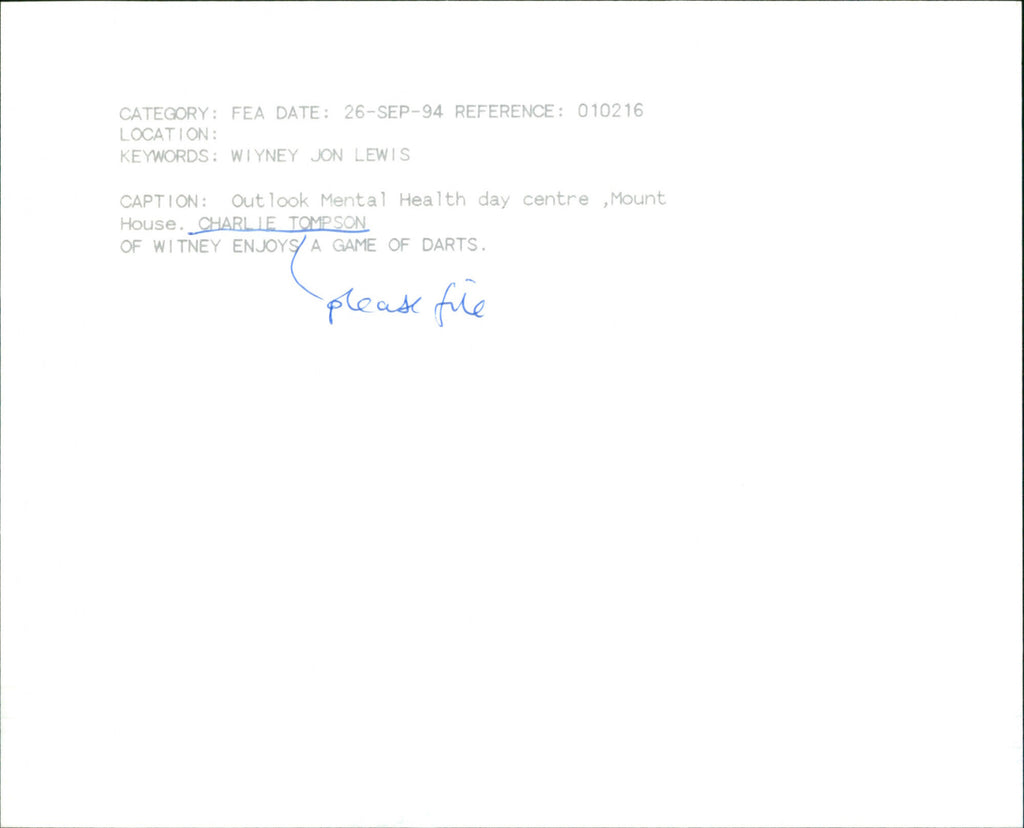 CATEGORY: FEA DATE: 26-SEP-94 REFERENCE: 010216
LOCATION:
KEYWORDS: WIYNEY JON LEWIS
CAPTION: Outlook Mental Health day centre ,Mount
House. CHARLIE TOMPSON
OF WITNEY ENJOYS A GAME OF DARTS.
please file